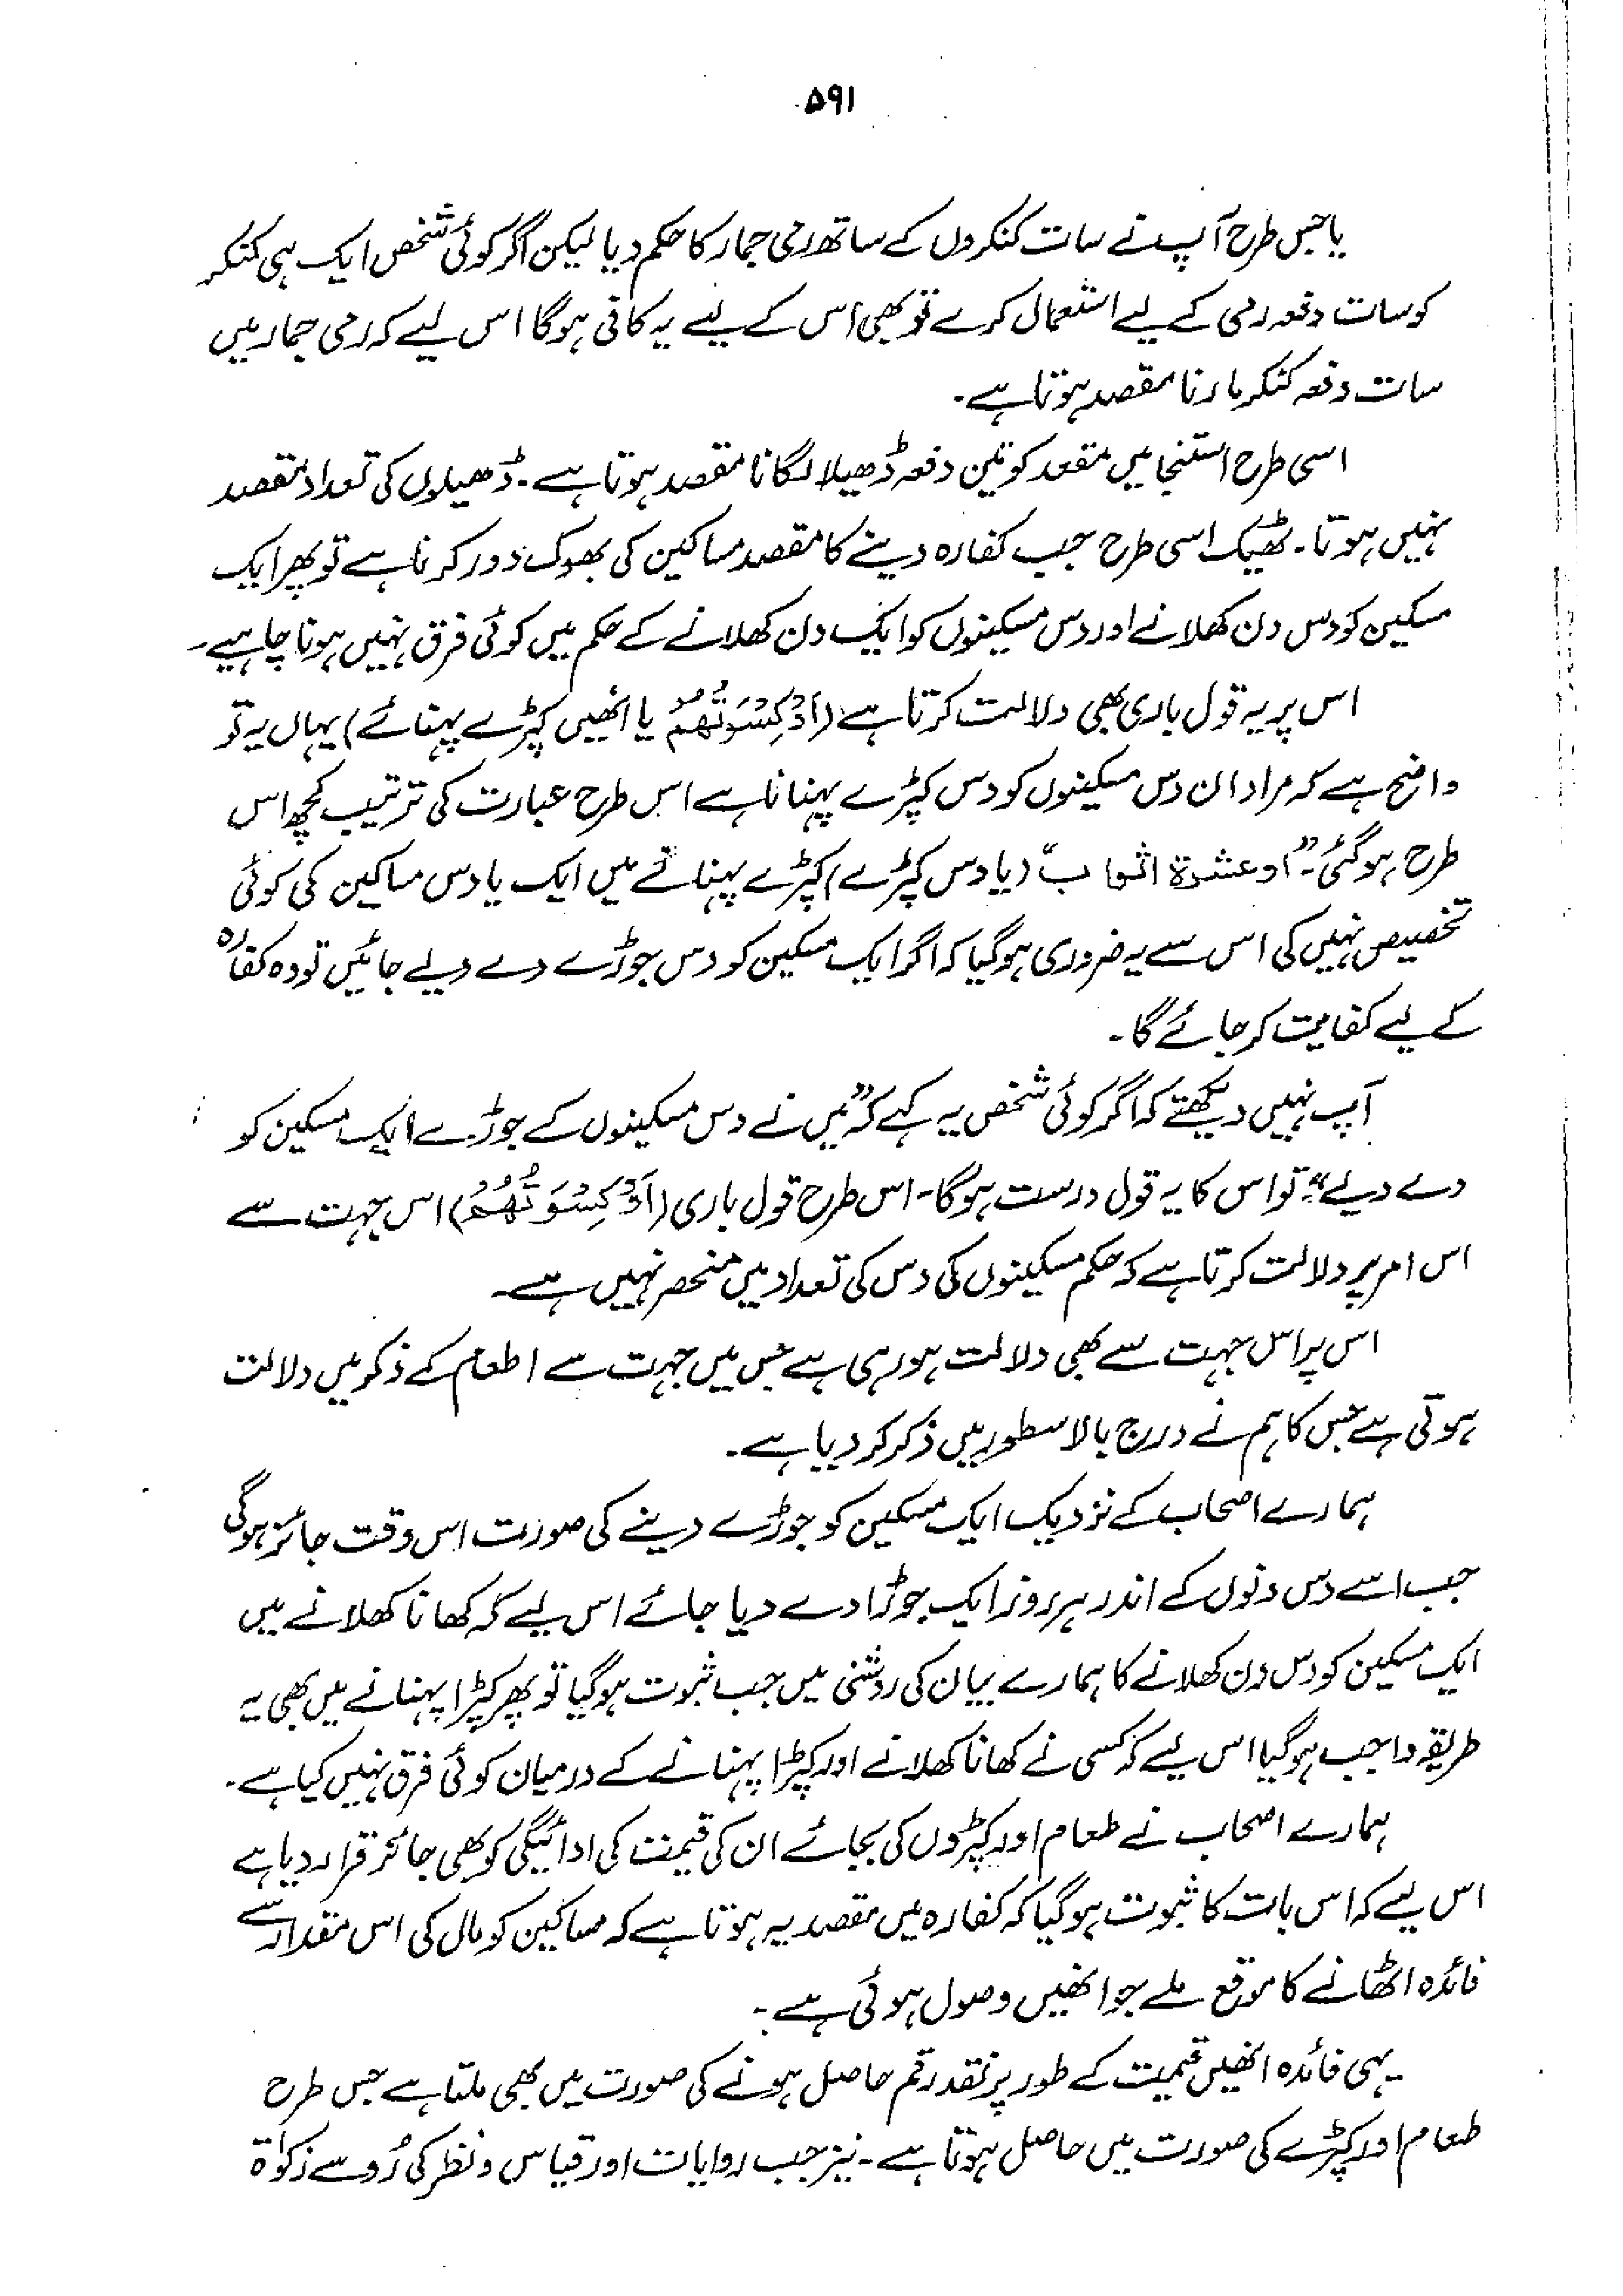 ۵۹۱
یا جس طرح آپ نے سات کنکروں کے ساتھ رمی جمار کا حکم دیا لیکن اگر کوئی شخص ایک ہی کنکر
کو سات دفعہ رمی کے لیے استعمال کرے تو بھی اس کے لیے یہ کافی ہوگا اس لیے کہ رمی جمار میں
سات دفعہ کنکر مارنا مقصد ہوتا ہے۔
اسی طرح استنجا میں مقعد کو تین دفعہ ڈھیلا لگانا مقصد ہوتا ہے۔ ڈھیلوں کی تعداد مقصد
نہیں ہوتا۔ ٹھیک اسی طرح جب کفارہ دینے کا مقصد مساکین کی بھوک دور کرنا ہے تو پھر ایک
مسکین کو دس دن کھلانے اور دس مسکینوں کو ایک دن کھلانے کے حکم میں کوئی فرق نہیں ہونا چاہیے۔
اس پر یہ قول باری بھی دلالت کرتا ہے (اَوْ كِسْوَتُهُمْ یا انھیں کپڑے پہنائے) یہاں یہ تو
واضح ہے کہ مراد ان دس مسکینوں کو دس کپڑے پہنانا ہے اس طرح عبارت کی ترتیب کچھ اس
طرح ہو گئی۔ "او عشرۃ اثواب" (یا دس کپڑے) کپڑے پہنانے میں ایک یا دس مساکین کی کوئی
تخصیص نہیں کی اس سے یہ ضروری ہوگیا کہ اگر ایک مسکین کو دس جوڑے دے دیے جائیں تو وہ کفارہ
کے لیے کفایت کر جائے گا۔
آپ نہیں دیکھتے کہ اگر کوئی شخص یہ کہے کہ "میں نے دس مسکینوں کے جوڑے ایک مسکین کو
دے دیے"۔ تو اس کا یہ قول درست ہوگا۔ اس طرح قول باری (اَوْ كِسْوَتُهُمْ) اس جہت سے
اس امر پر دلالت کرتا ہے کہ حکم مسکینوں کی دس کی تعداد میں منحصر نہیں ہے۔
اس پر اس جہت سے بھی دلالت ہو رہی ہے جس میں جہت سے اطعام کے ذکر میں دلالت
ہوتی ہے جس کا ہم نے درج بالا سطور میں ذکر کر دیا ہے۔
ہمارے اصحاب کے نزدیک ایک مسکین کو جوڑے دینے کی صورت اس وقت جائز ہوگی
جب اسے دس دنوں کے اندر ہر روز ایک جوڑا دے دیا جائے اس لیے کہ کھانا کھلانے میں
ایک مسکین کو دس دن کھلانے کا ہمارے بیان کی روشنی میں جب ثبوت ہو گیا تو پھر کپڑا پہنانے میں بھی یہ
طریقہ واجب ہوگیا اس لیے کہ کسی نے کھانا کھلانے اور کپڑا پہنانے کے درمیان کوئی فرق نہیں کیا ہے۔
ہمارے اصحاب نے طعام اور کپڑوں کی بجائے ان کی قیمت کی ادائیگی کو بھی جائز قرار دیا ہے
اس لیے کہ اس بات کا ثبوت ہوگیا کہ کفارہ میں مقصد یہ ہوتا ہے کہ مساکین کو مال کی اس مقدار سے
فائدہ اٹھانے کا موقع ملے جو انھیں وصول ہوئی ہے۔
یہی فائدہ انھیں قیمت کے طور پر نقد رقم حاصل ہونے کی صورت میں بھی ملتا ہے جس طرح
طعام اور کپڑے کی صورت میں حاصل ہوتا ہے۔ نیز جب روایات اور قیاس و نظر کی رُو سے زکوٰۃ